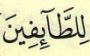 لِلطَّآئِفِينَ